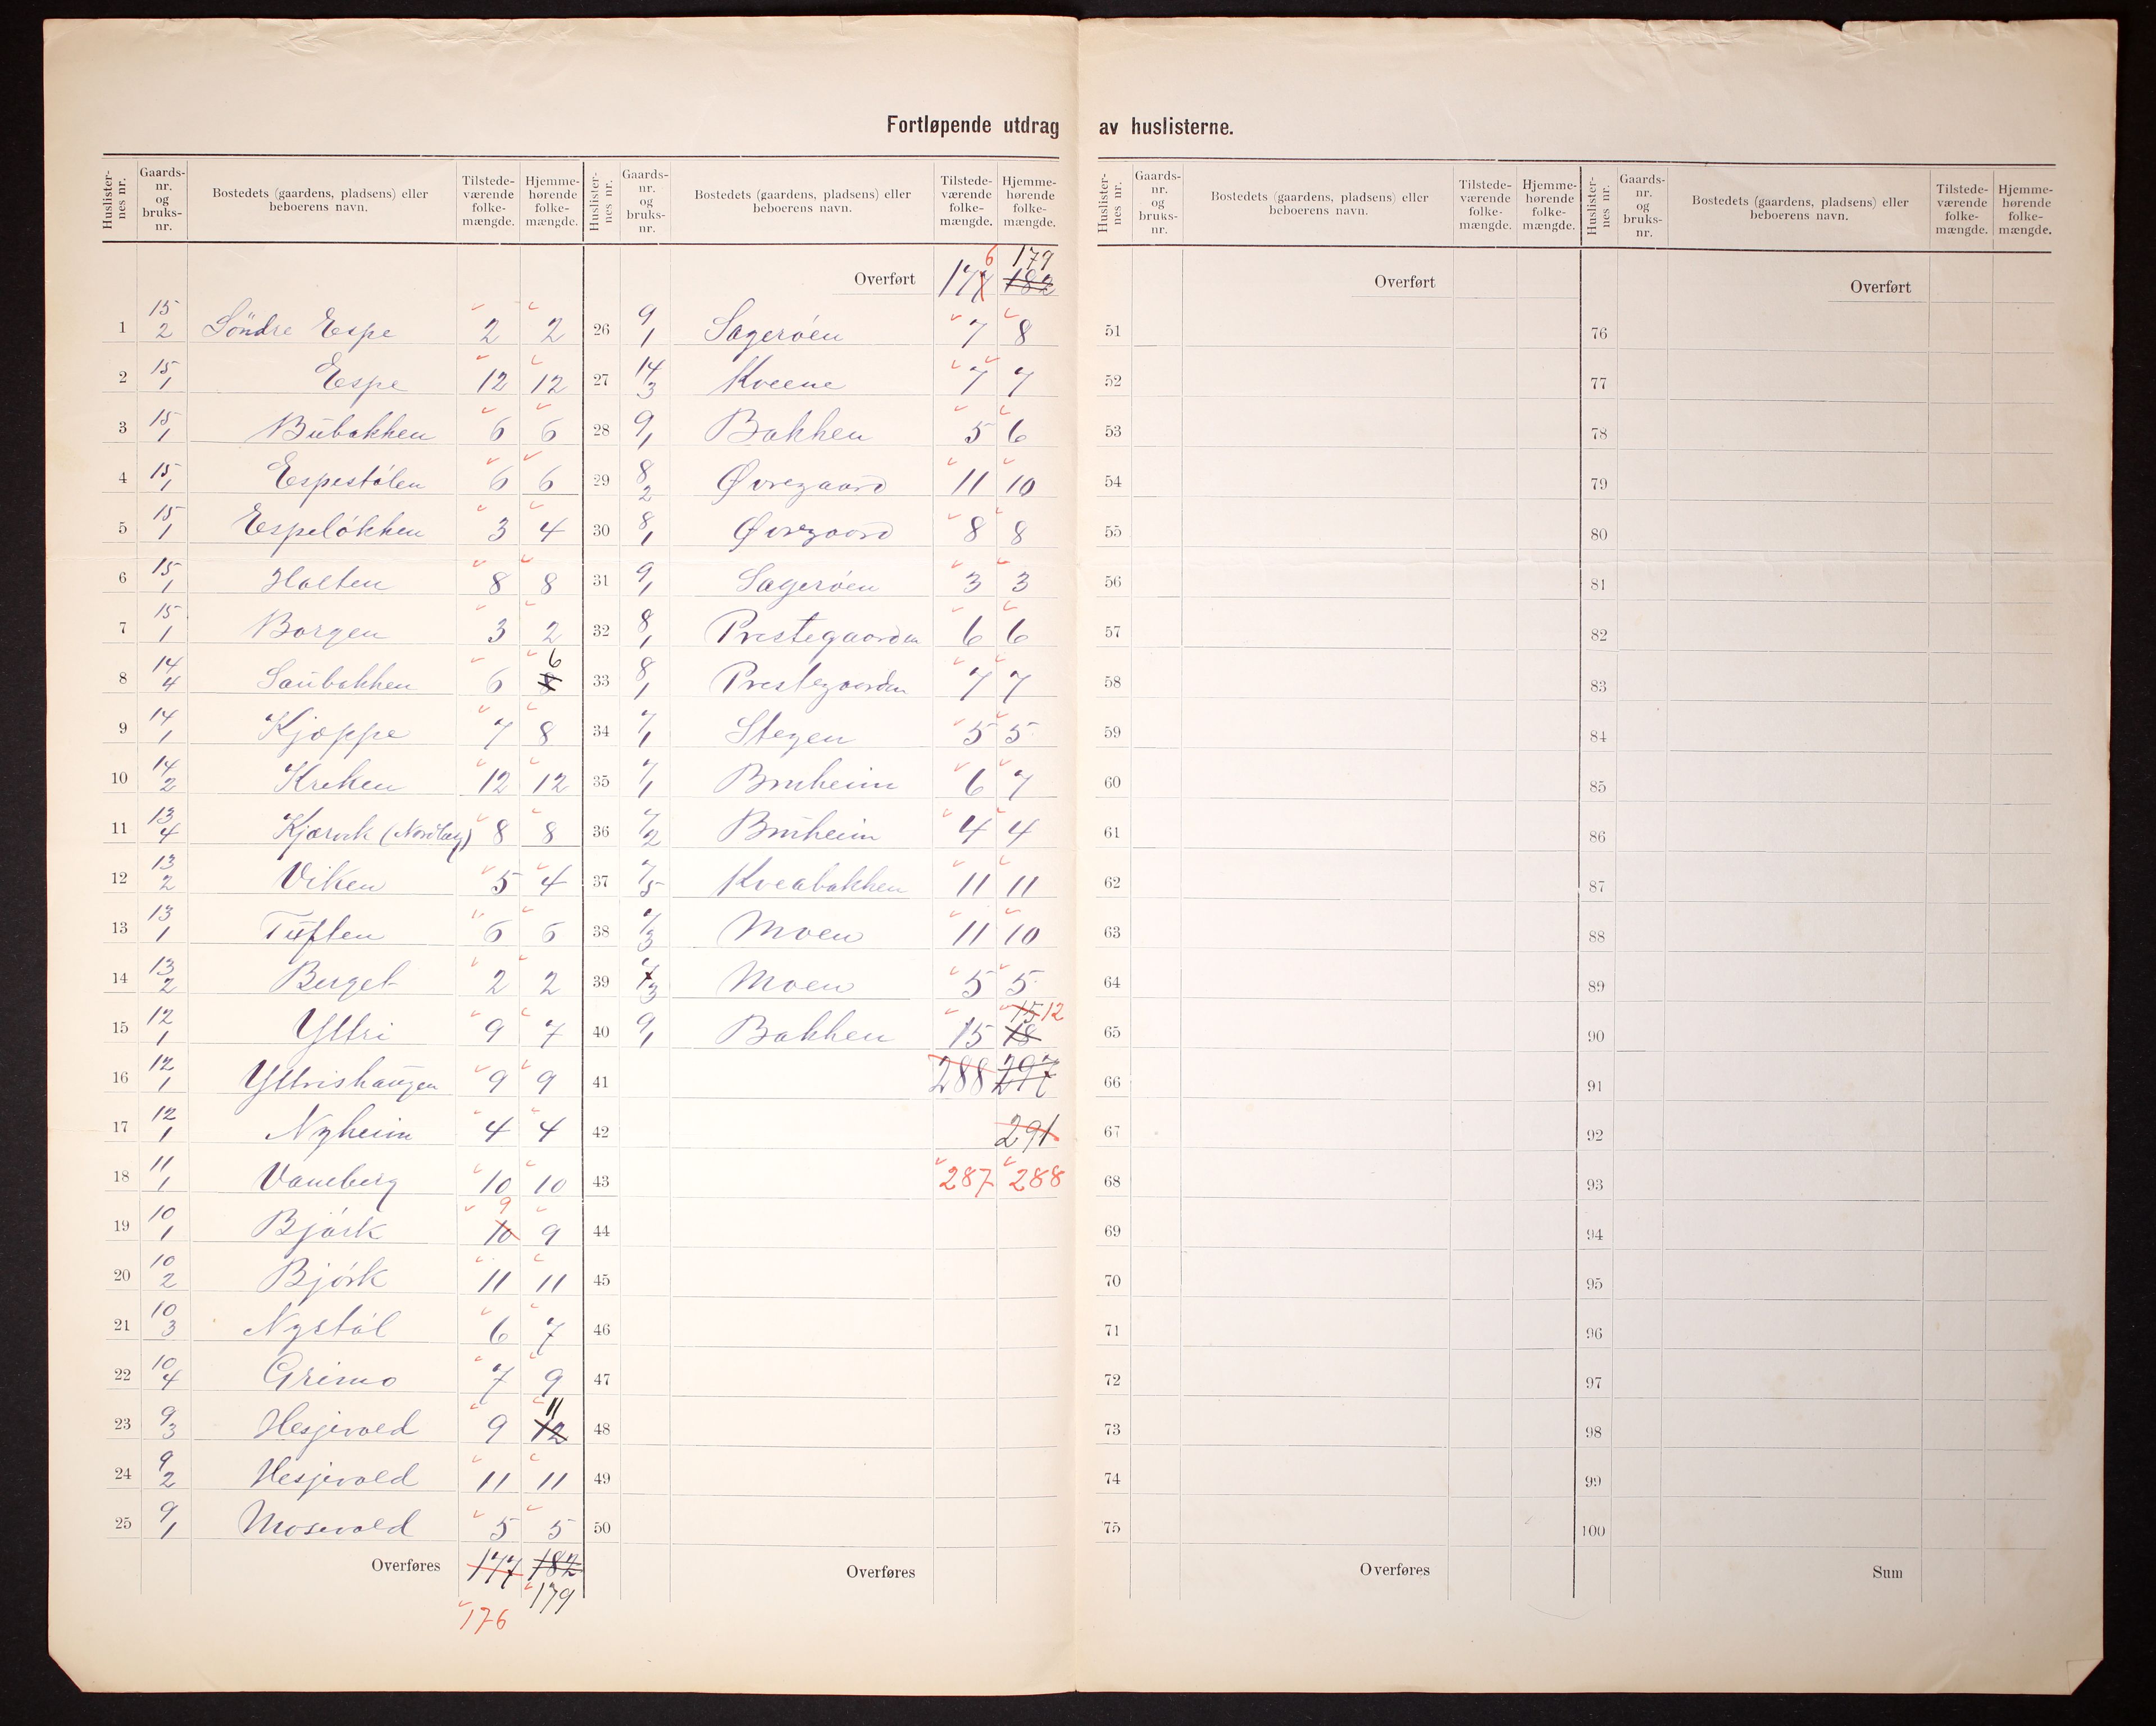 Fortløpende utdrag av huslisterne.
Huslister-nes nr. Gaards-nr. og bruks-nr. Bostedets (gaardens, pladsens) eller beboerens navn. Tilstede-værende folke-mængde. Hjemme-hørende folke-mængde. Huslister-nes nr. Gaards-nr. og bruks-nr. Bostedets (gaardens, pladsens) eller beboerens navn. Tilstede-værende folke-mængde. Hjemme-hørende folke-mængde.
1 15/2 Söndre Espe 2 2
2 15/1 Espe 12 12
3 15/1 Bubakken 6 6
4 15/1 Espestölen 6 6
5 15/1 Espelökken 3 4
6 15/1 Holten 8 8
7 15/1 Borgen 3 2
8 14/4 Saubakken 6 8 6
9 14/1 Kjøppe 7 8
10 14/2 Kreken 12 12
11 13/4 Kjærvik 8 8
12 13/2 Viken 5 4
13 13/1 Tuften 6 6
14 13/2 Berget 2 2
15 12/1 Yttri 9 7
16 12/1 Yttrishaugen 9 9
17 12/1 Nyheim 4 4
18 11/1 Vaneberg 10 10
19 10/1 Björk 10 9 9
20 10/2 Björk 11 11
21 10/3 Nystöl 6 7
22 10/4 Grimo 7 9
23 9/3 Hesjevold 9 12 11
24 9/2 Hesjevold 11 11
25 9/1 Mosevold 5 5
Overføres 177 182
179
176
Overført 177 6 182 179
26 9/1 Sagerøen 7 8
27 14/3 Kveene 7 7
28 9/1 Bakken 5 6
29 8/2 Øvregaard 11 10
30 8/1 Øvregaard 8 8
31 9/1 Sagerøen 3 3
32 8/1 Prestegaarden 6 6
33 8/1 Prestegaarden 7 7
34 7/1 Stegen 5 5
35 7/1 Bruheim 6 7
36 7/2 Bruheim 4 4
37 7/5 Kveabakken 11 11
38 7/3 Moen 11 10
39 7/3 Moen 5 5
40 9/1 Bakken 15 18 15 12
41 288 297
42 291
43 287 288
44
45
46
47
48
49
50
Overføres
Huslister-nes nr. Gaards-nr. og bruks-nr. Bostedets (gaardens, pladsens) eller beboerens navn. Tilstede-værende folke-mængde. Hjemme-hørende folke-mængde. Huslister-nes nr. Gaards-nr. og bruks-nr. Bostedets (gaardens, pladsens) eller beboerens navn. Tilstede-værende folke-mængde. Hjemme-hørende folke-mængde.
Overført
51
52
53
54
55
56
57
58
59
60
61
62
63
64
65
66
67
68
69
70
71
72
73
74
75
Overføres
Overført
76
77
78
79
80
81
82
83
84
85
86
87
88
89
90
91
92
93
94
95
96
97
98
99
100
Sum